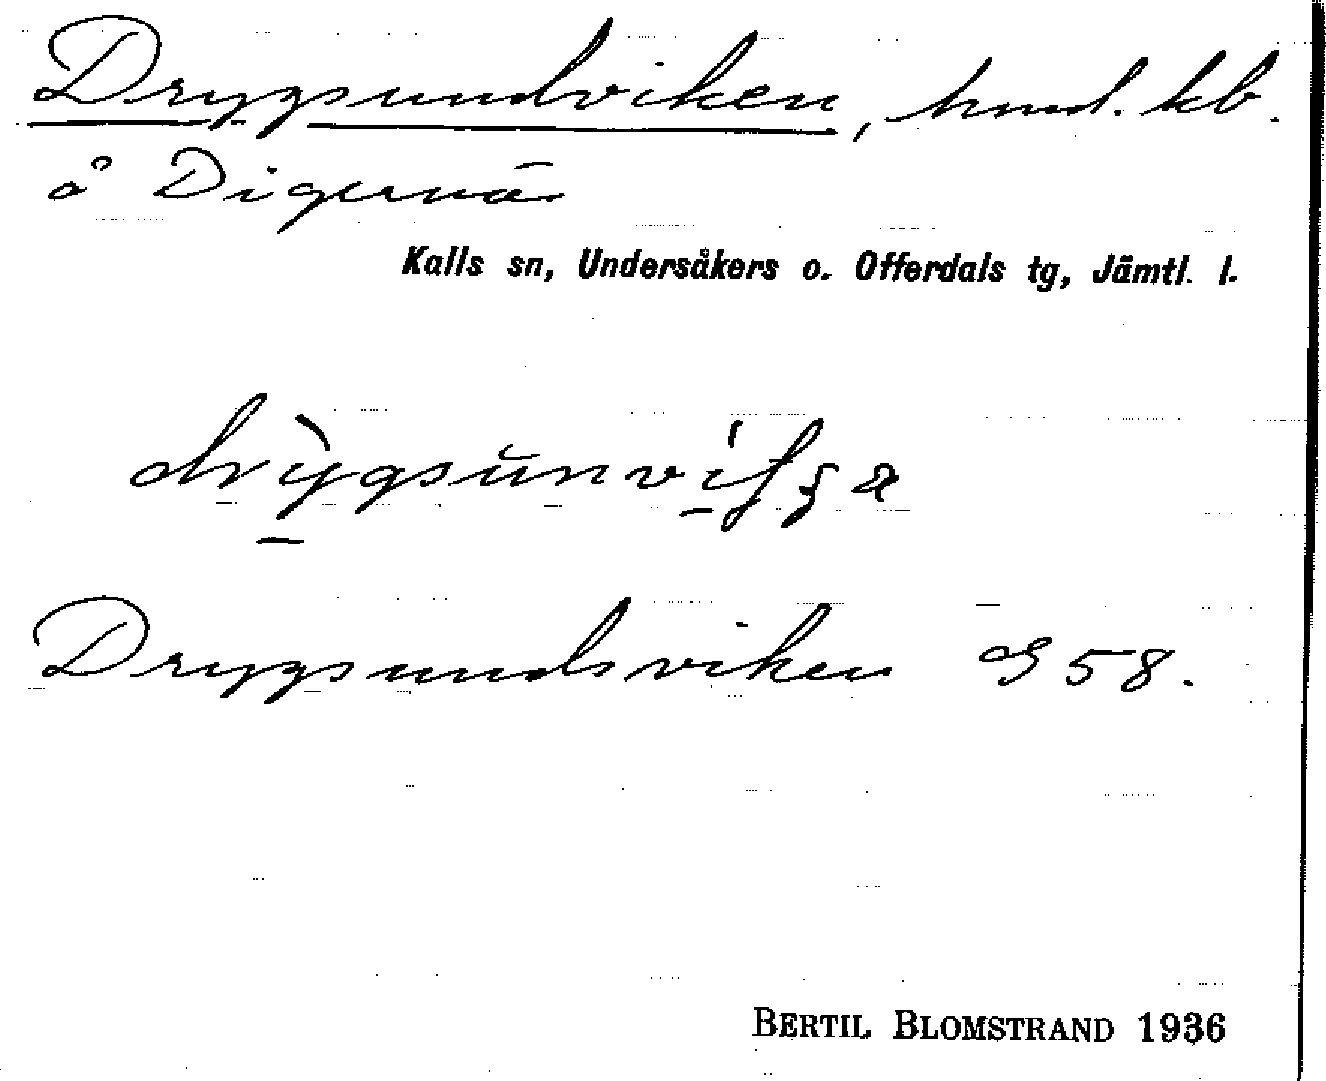 Drygsundviken, hmd. kb.
å Digernäs
Kalls sn, Undersåkers o. Offerdals tg, Jämtl. l.
Drygsundsviken G 58.
BERTIL BLOMSTRAND 1936